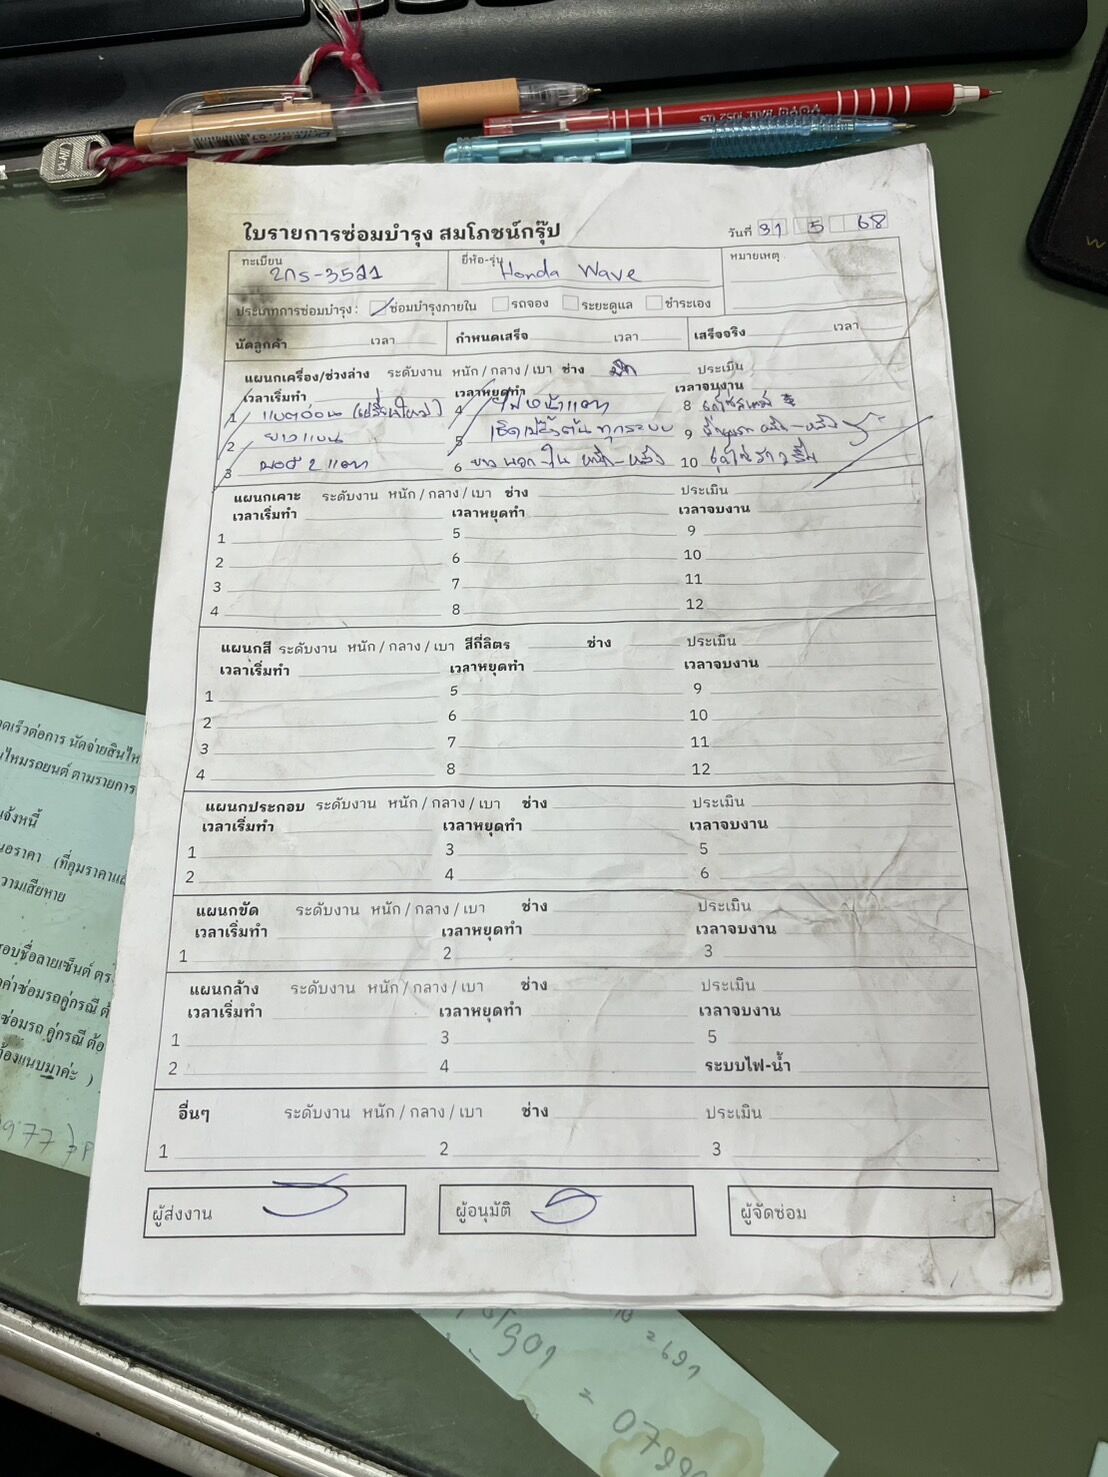 ใบรายการซ่อมบำรุง สมโภชน์กรุ๊ป
วันที่ 31 5 68
ทะเบียน 2กร-3521
ยี่ห้อ-รุ่น Honda Wave
หมายเหตุ
ประเภทการซ่อมบำรุง : ซ่อมบำรุงภายใน รถจอง ระยะดูแล ชำระเอง
นัดลูกค้า เวลา กำหนดเสร็จ เวลา เสร็จจริง เวลา
แผนกเครื่อง/ช่วงล่าง ระดับงาน หนัก / กลาง / เบา ช่าง ประเมิน
เวลาเริ่มทำ เวลาหยุดทำ เวลาจบงาน
1 แบตอ่อน (เปลี่ยนใหม่) 4 ไฟหน้าแตก 8
2 ยางแบน 5 เช็คเบื้องต้นทุกระบบ 9
3 6 ยางนอก-ใน หน้า-หลัง 10
แผนกเคาะ ระดับงาน หนัก / กลาง / เบา ช่าง ประเมิน
เวลาเริ่มทำ เวลาหยุดทำ เวลาจบงาน
1 5 9
2 6 10
3 7 11
4 8 12
แผนกสี ระดับงาน หนัก / กลาง / เบา สีกี่ลิตร ช่าง ประเมิน
เวลาเริ่มทำ เวลาหยุดทำ เวลาจบงาน
1 5 9
2 6 10
3 7 11
4 8 12
แผนกประกอบ ระดับงาน หนัก / กลาง / เบา ช่าง ประเมิน
เวลาเริ่มทำ เวลาหยุดทำ เวลาจบงาน
1 3 5
2 4 6
แผนกขัด ระดับงาน หนัก / กลาง / เบา ช่าง ประเมิน
เวลาเริ่มทำ เวลาหยุดทำ เวลาจบงาน
1 2 3
แผนกล้าง ระดับงาน หนัก / กลาง / เบา ช่าง ประเมิน
เวลาเริ่มทำ เวลาหยุดทำ เวลาจบงาน
1 3 5
2 4 ระบบไฟ-น้ำ
อื่นๆ ระดับงาน หนัก / กลาง / เบา ช่าง ประเมิน
1 2 3
ผู้ส่งงาน ผู้อนุมัติ ผู้จัดซ่อม
ดเร็วต่อการ นัดจ่ายสินไห
นไหมรถยนต์ ตามรายการ
แจ้งหนี้
นอราคา (ที่คุมราคาแล
วามเสียหาย
อบชื่อลายเซ็นต์
ค่าซ่อมรถคู่กรณี
ซ่อมรถ คู่กรณี ต้อ
ต้องแนบมาค่ะ )